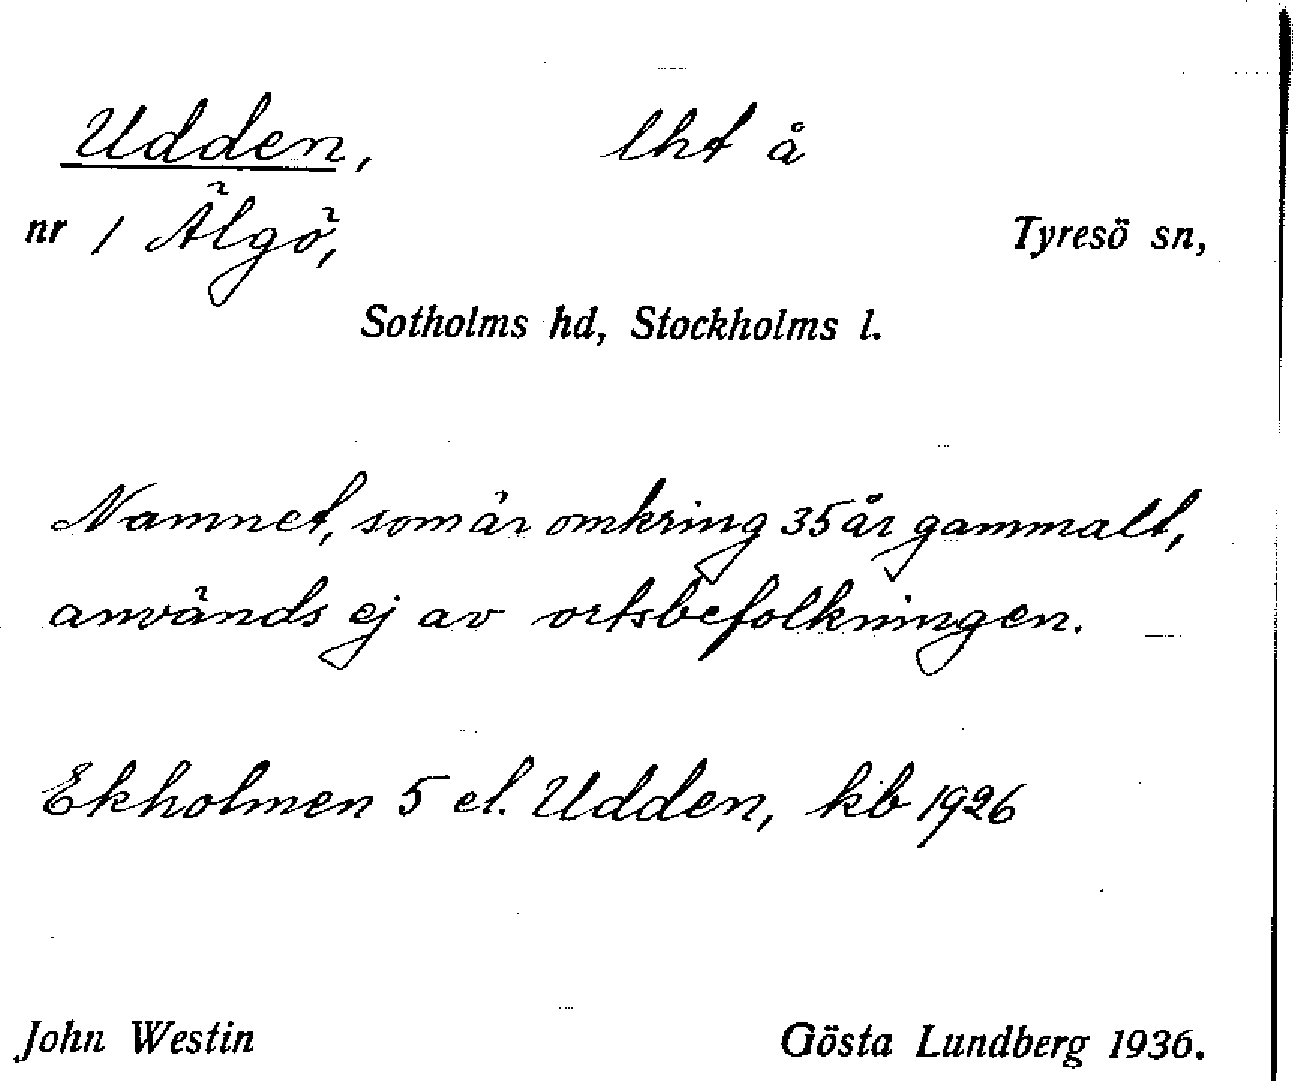 Udden, lht å
nr 1 Älgö, Tyresö sn,
Sotholms hd, Stockholms l.
Namnet, som är omkring 35 år gammalt,
används ej av ortsbefolkningen.
Ekholmen 5 el. Udden, kb 1926
John Westin Gösta Lundberg 1936.